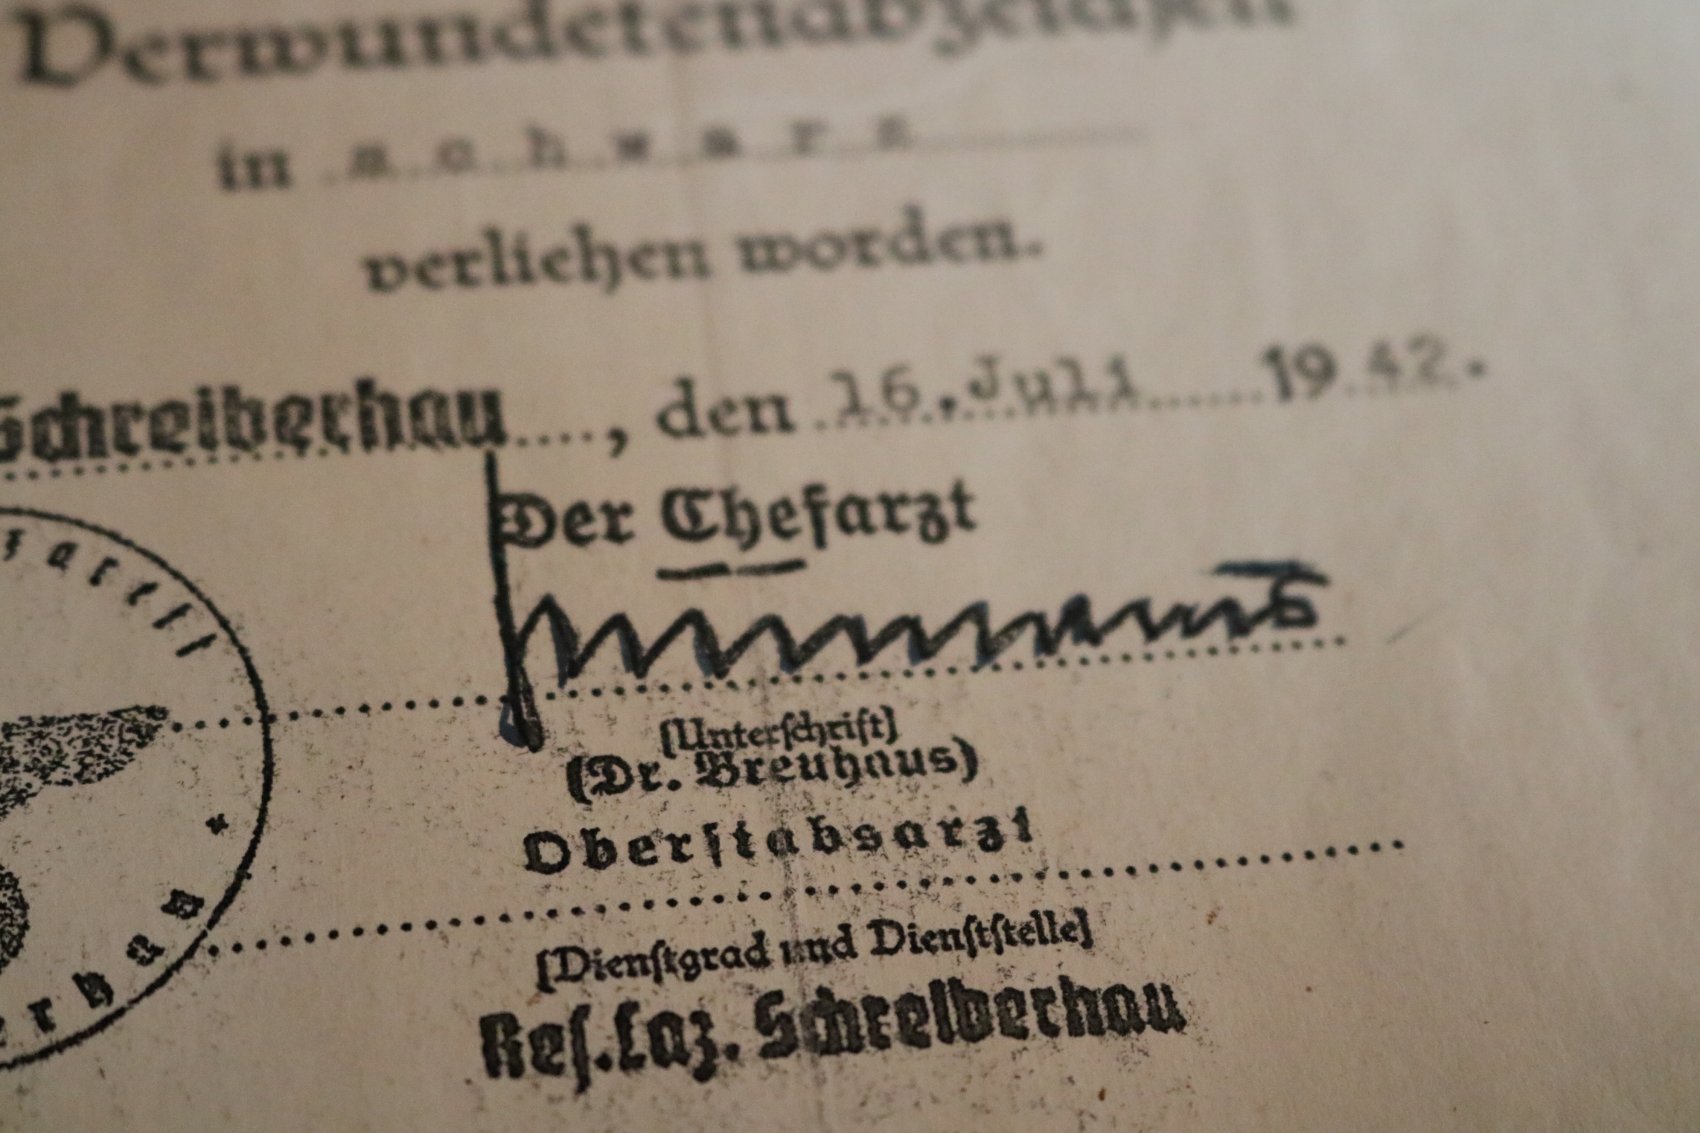 Verwundetenabzeichen
in schwarz
verliehen worden.
Schreiberhau , den 16.Juli 1942.
Der Chefarzt
[Unterschrift]
(Dr. Breuhaus)
Oberstabsarzt
[Dienstgrad und Dienststelle]
Res.Laz. Schreiberhau